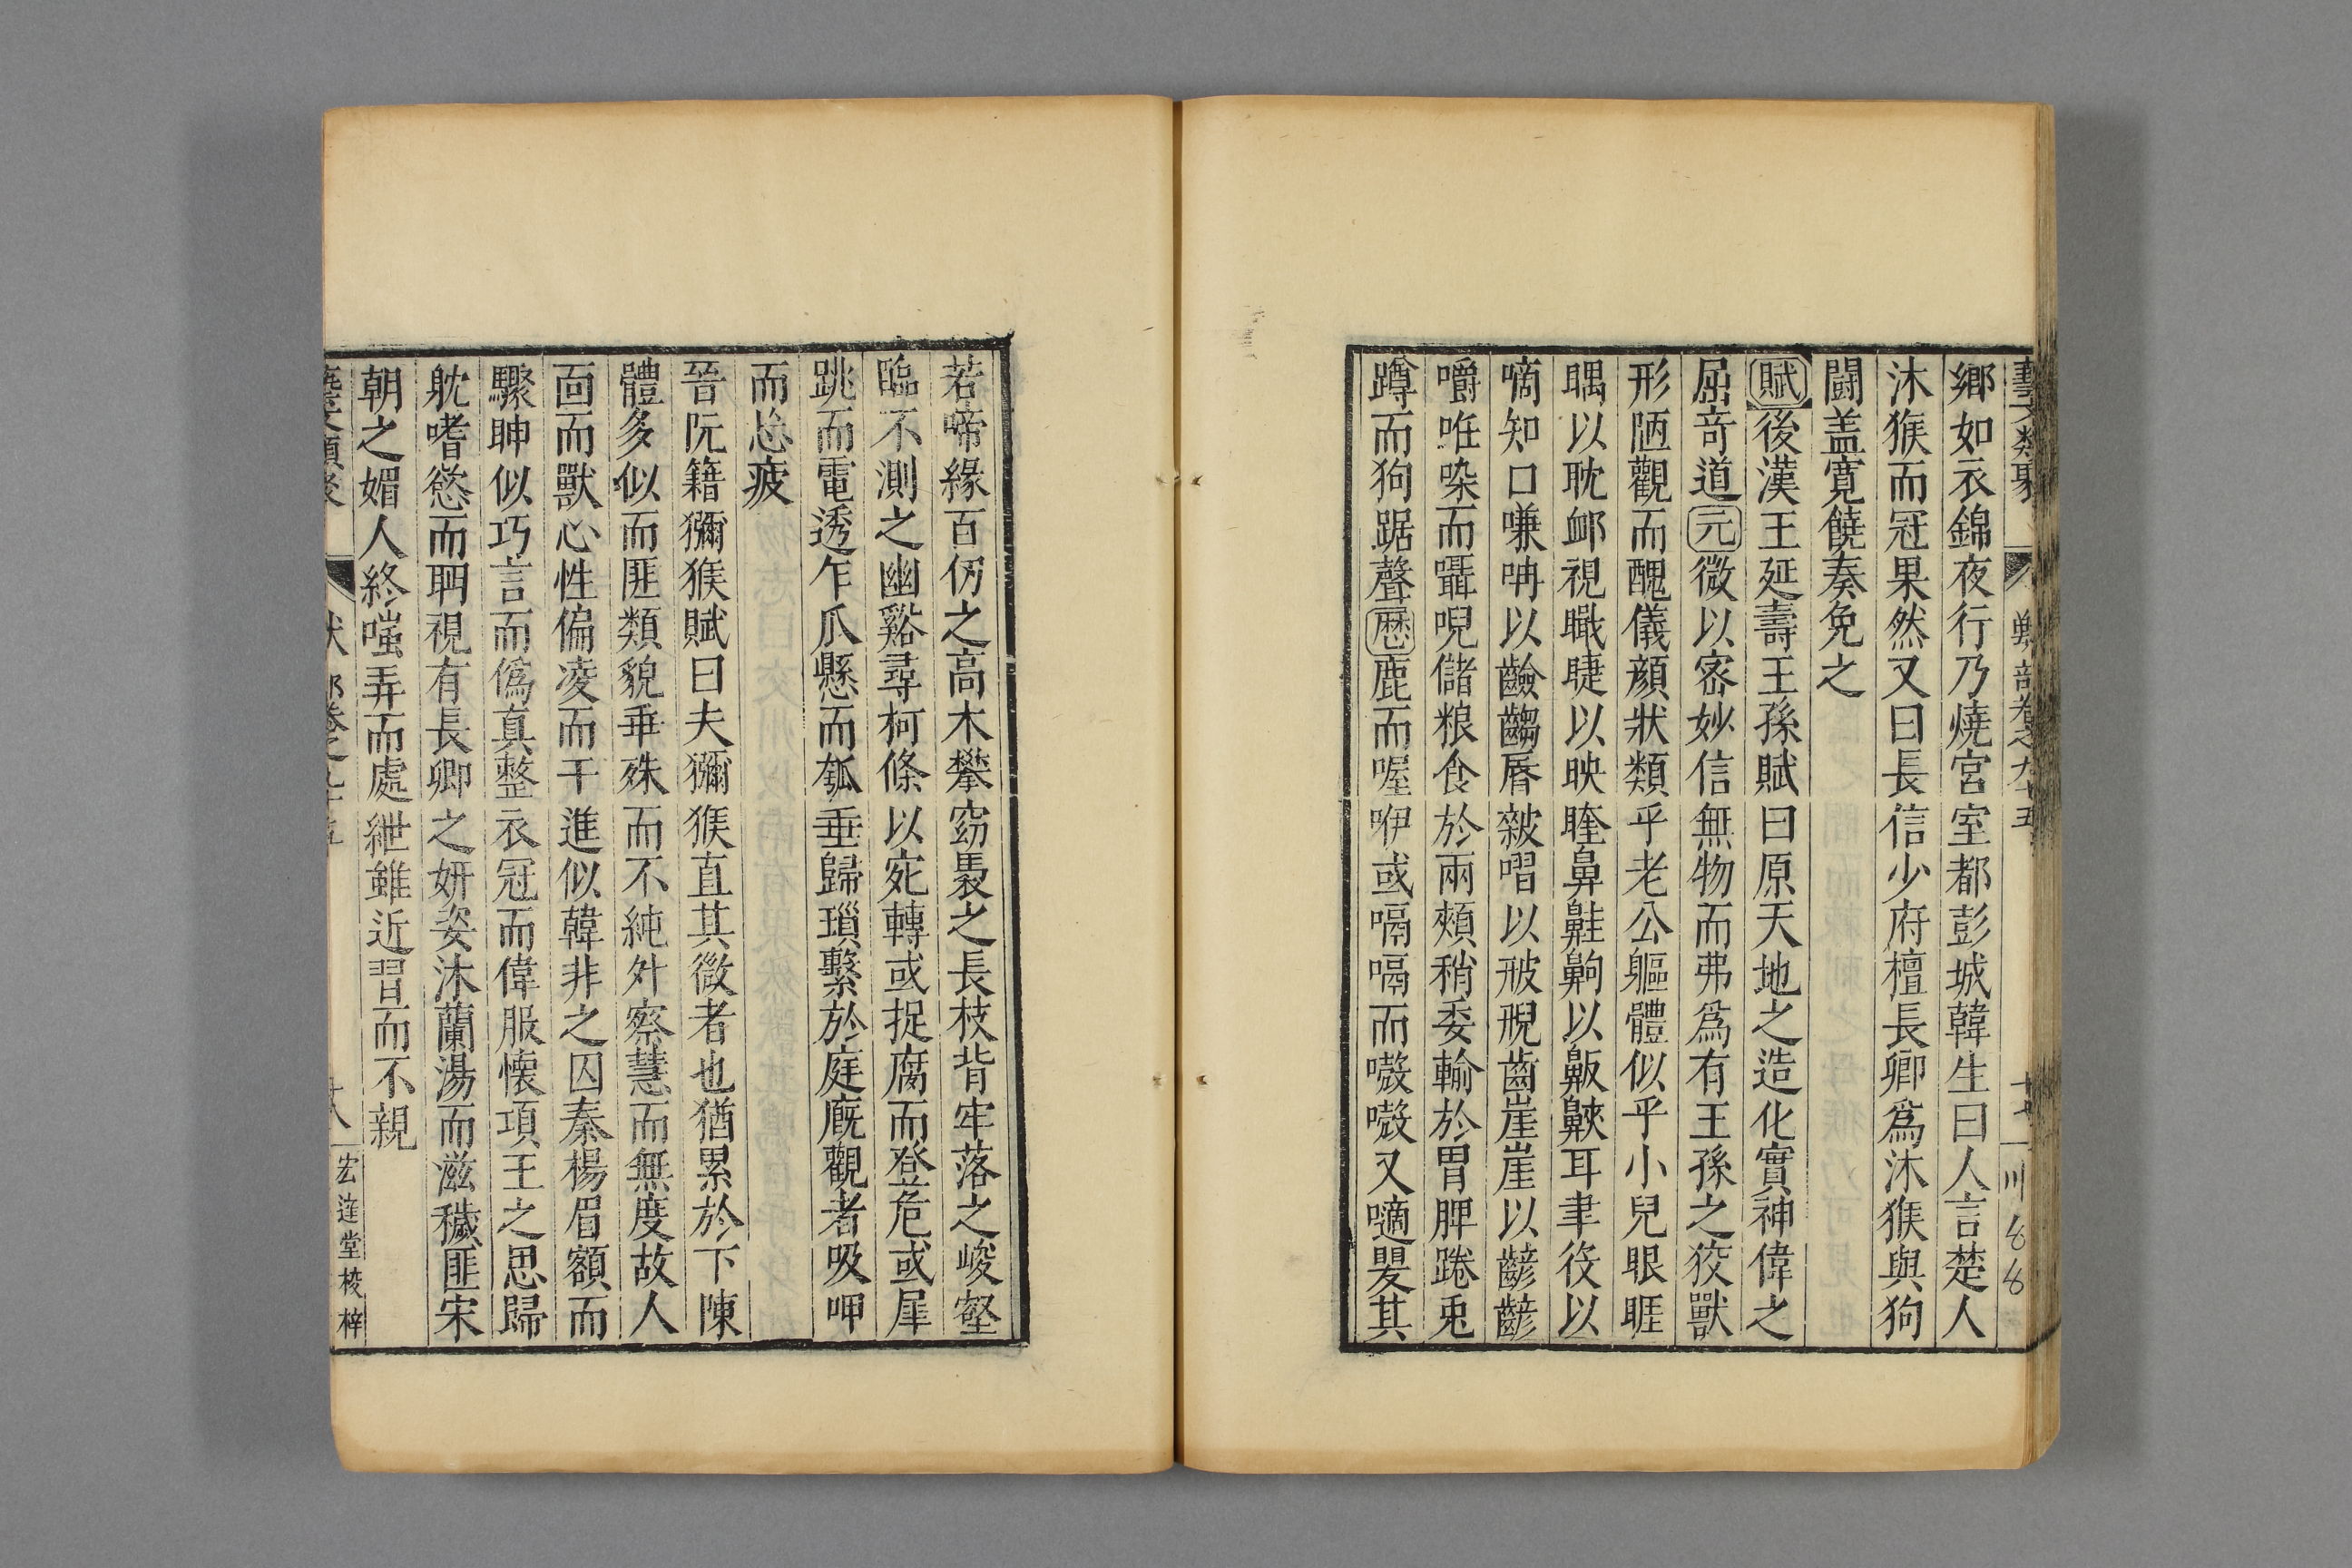 藝文類聚 獸部卷之九十五 十七 川
鄉如衣錦夜行乃燒宮室都彭城韓生曰人言楚人
沐猴而冠果然又曰長信少府檀長卿爲沐猴與狗
鬪盖寬饒奏免之
賦後漢王延壽王孫賦曰原天地之造化實神偉之
屈奇道元微以密妙信無物而弗爲有王孫之狡獸
形陋觀而醜儀顏狀類乎老公軀體似乎小兒眼睚
䁥以眈䘏視瞮睫以映𥇛鼻䶎齁以䶌䶍耳聿役以
嘀知口嗛呥以齴齺脣𤿎㗩以䏢䑃齒崖崖以齴齴
嚼唯㗱而囁唲儲粮食於兩頰稍委輸於胃脾蜷兎
蹲而狗踞聲歷鹿而喔咿或嗝嗝而嗷嗷又嚙㜸其
若啼緣百仞之高木攀窈褭之長枝背牢落之峻壑
臨不測之幽谿尋柯條以宛轉或捉腐而登危或犀
跳而電透乍爪懸而瓠垂歸瑣繫於庭廐觀者吸呷
而忘疲
晉阮籍獼猴賦曰夫獼猴直其微者也猶累於下陳
體多似而匪類貌乖殊而不純外察慧而無度故人
面而獸心性偏凌而干進似韓非之囚秦楊眉額而
驟眒似巧言而僞真整衣冠而偉服懷項王之思歸
躭嗜慾而眄視有長卿之妍姿沐蘭湯而滋穢匪宋
朝之媚人終嗤弄而處紲雖近習而不親
藝文類聚 獸部卷之九十五 十八 宏達堂棱梓